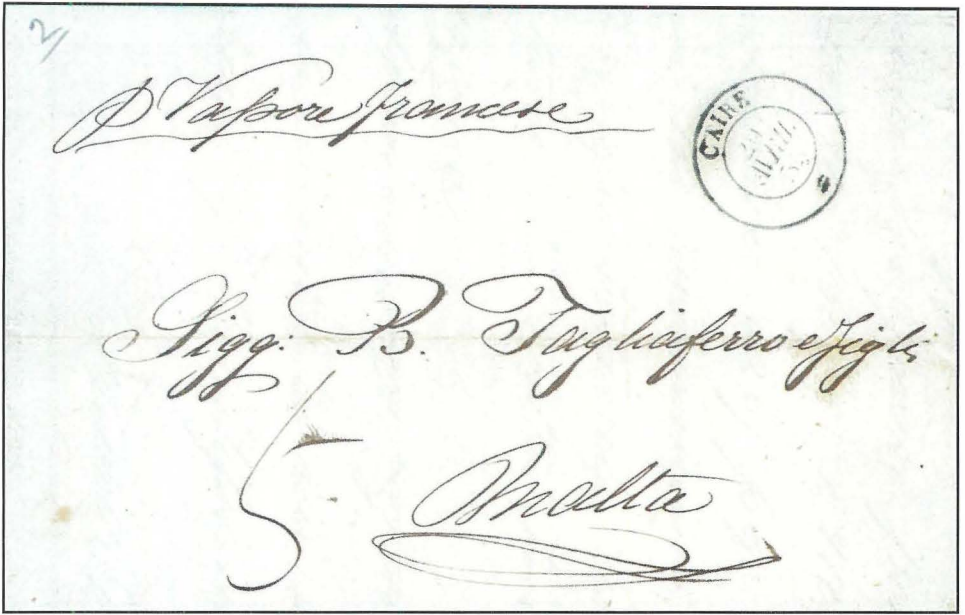 2/
p Vapore francese
CAIRE
AVRIL
Sigg. B. Tagliaferro e figli
5
Malta